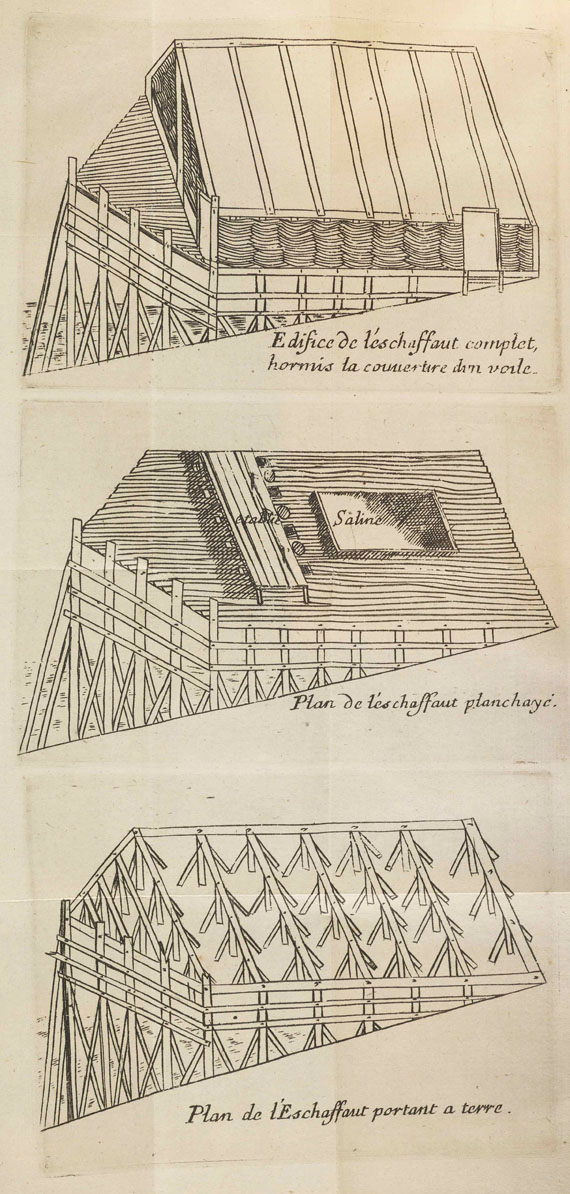 Edifice de léschaffaut complet,
hormis la couuerture dun voile.
etablie
Saline
Plan de léschaffaut planchayé.
Plan de l'Eschaffaut portant a terre.